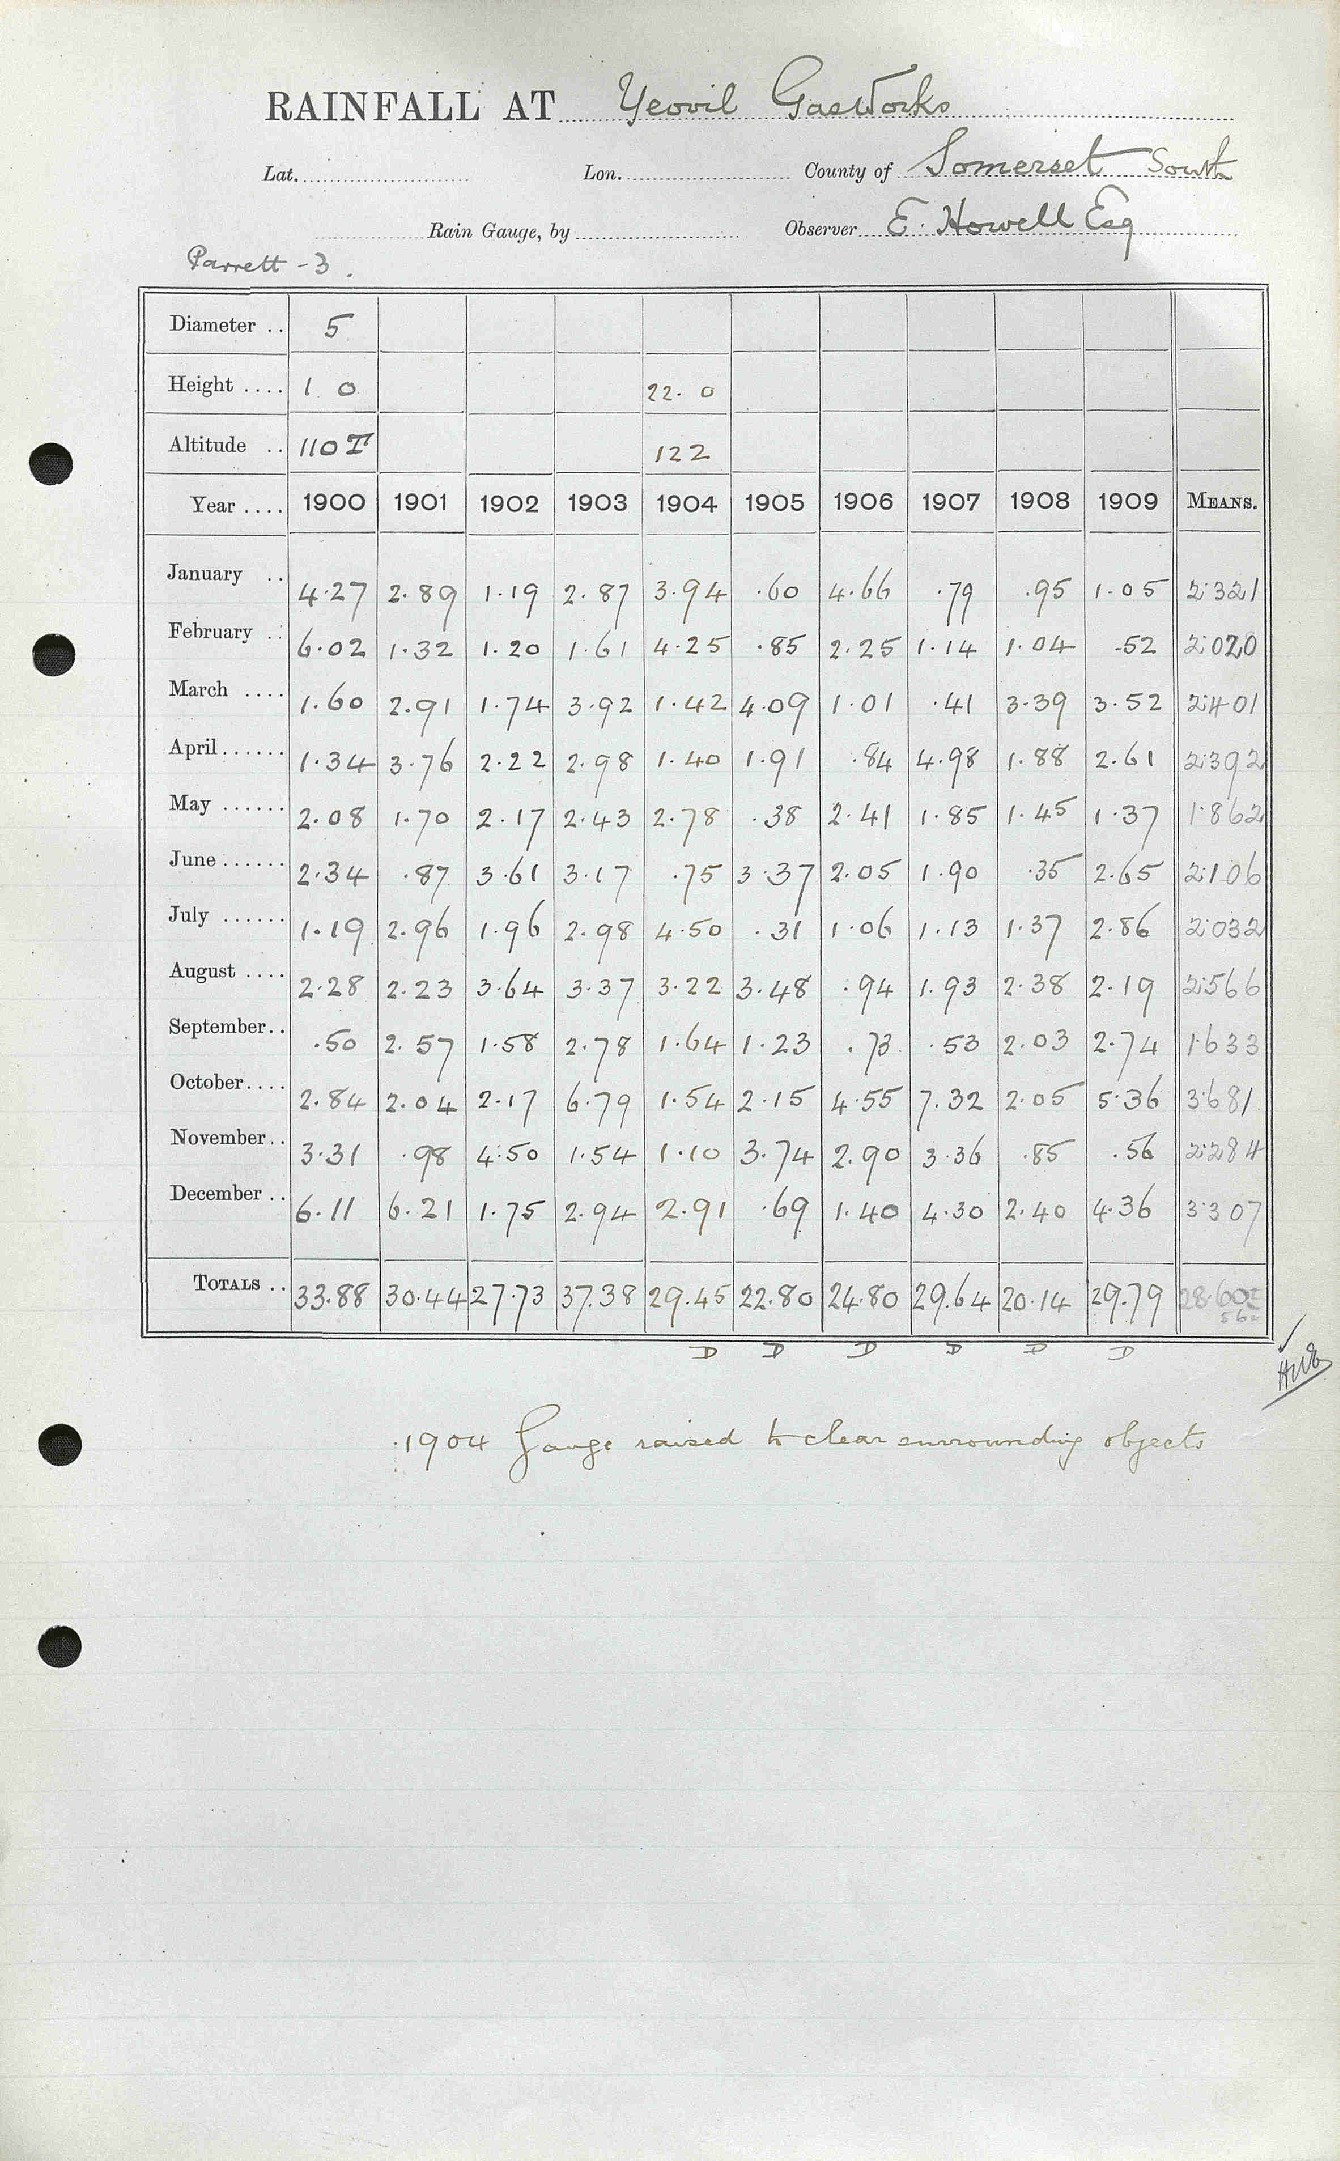 RAINFALL AT Yeovil GasWorks
Lat. Lon. County of Somerset South
Rain Gauge, by Observer E. Howell Esq
Parrett - 3.
Diameter .. 5
Height .... 1 0 22. 0
Altitude .. 110 T 122
Year .... 1900 1901 1902 1903 1904 1905 1906 1907 1908 1909 MEANS.
January .. 4.27 2.89 1.19 2.87 3.94 .60 4.66 .79 .95 1.05 2.321
February .. 6.02 1.32 1.20 1.61 4.25 .85 2.25 1.14 1.04 .52 2.020
March .... 1.60 2.91 1.74 3.92 1.42 4.09 1.01 .41 3.39 3.52 2.401
April ...... 1.34 3.76 2.22 2.98 1.40 1.91 .84 4.98 1.88 2.61 2.392
May ...... 2.08 1.70 2.17 2.43 2.78 .38 2.41 1.85 1.45 1.37 1.862
June ...... 2.34 .87 3.61 3.17 .75 3.37 2.05 1.90 .35 2.65 2.106
July ...... 1.19 2.96 1.96 2.98 4.50 .31 1.06 1.13 1.37 2.86 2.032
August .... 2.28 2.23 3.64 3.37 3.22 3.48 .94 1.93 2.38 2.19 2.566
September.. .50 2.57 1.58 2.78 1.64 1.23 .73 .53 2.03 2.74 1.633
October.... 2.84 2.04 2.17 6.79 1.54 2.15 4.55 7.32 2.05 5.36 3.681
November.. 3.31 .98 4.50 1.54 1.10 3.74 2.90 3.36 .85 .56 2.284
December .. 6.11 6.21 1.75 2.94 2.91 .69 1.40 4.30 2.40 4.36 3.307
TOTALS .. 33.88 30.44 27.73 37.38 29.45 22.80 24.80 29.64 20.14 29.79 28.605
D D D D D D
1904 Gauge raised to clear surrounding objects